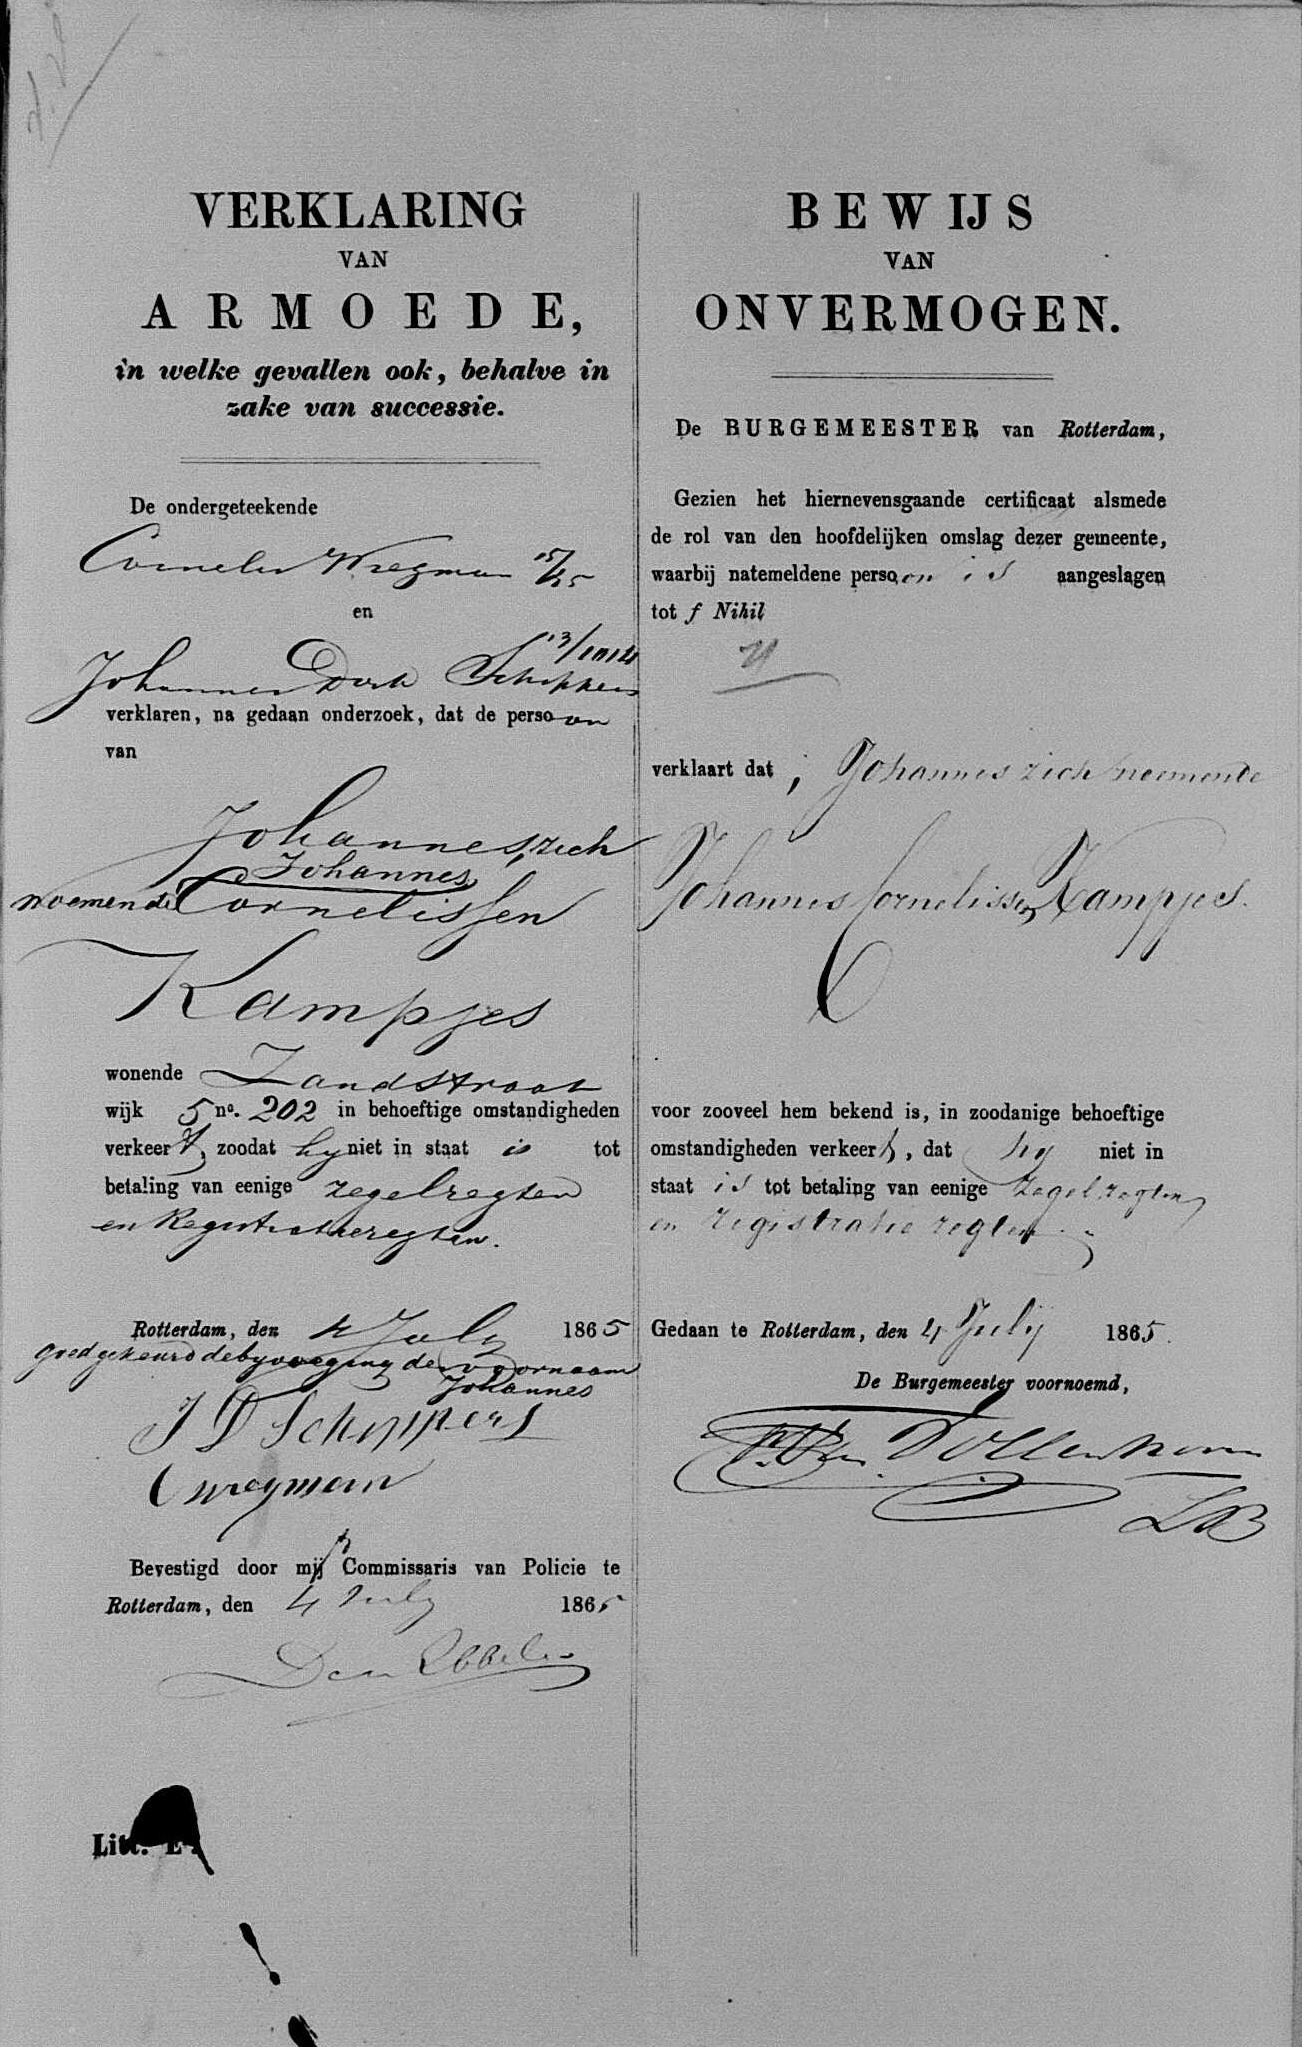 VERKLARING
VAN
ARMOEDE,
in welke gevallen ook, behalve in
zake van successie.
De ondergeteekende
Cornelis Wregman 15/25
en
13/1014
Johannes Dirk Schippers
verklaren, na gedaan onderzoek, dat de persoon
van
Johannes, zich
Johannes
noemende Cornelissen
Kampjes
wonende Zandstraat
wijk 5 no. 202 in behoeftige omstandigheden
verkeert, zoodat hy niet in staat is tot
betaling van eenige zegelregten
en Registratieregten.
Rotterdam, den 4 July 1865
goedgekeurd de byvoeging der voornaam
Johannes
J D Schippers
C Wregman
Bevestigd door mij Commissaris van Policie te
Rotterdam, den 4 July 1865
Litt. E
BEWIJS
VAN
ONVERMOGEN.
De BURGEMEESTER van Rotterdam,
Gezien het hiernevensgaande certificaat alsmede
de rol van den hoofdelijken omslag dezer gemeente,
waarbij natemeldene persoon is aangeslagen
tot f Nihil
verklaart dat Johannes zich noemende
Johannes Cornelissen Kampjes.
voor zooveel hem bekend is, in zoodanige behoeftige
omstandigheden verkeert, dat hy niet in
staat is tot betaling van eenige zegelregten
en registratie regten
Gedaan te Rotterdam, den 4 July 1865.
De Burgemeester voornoemd,
LB